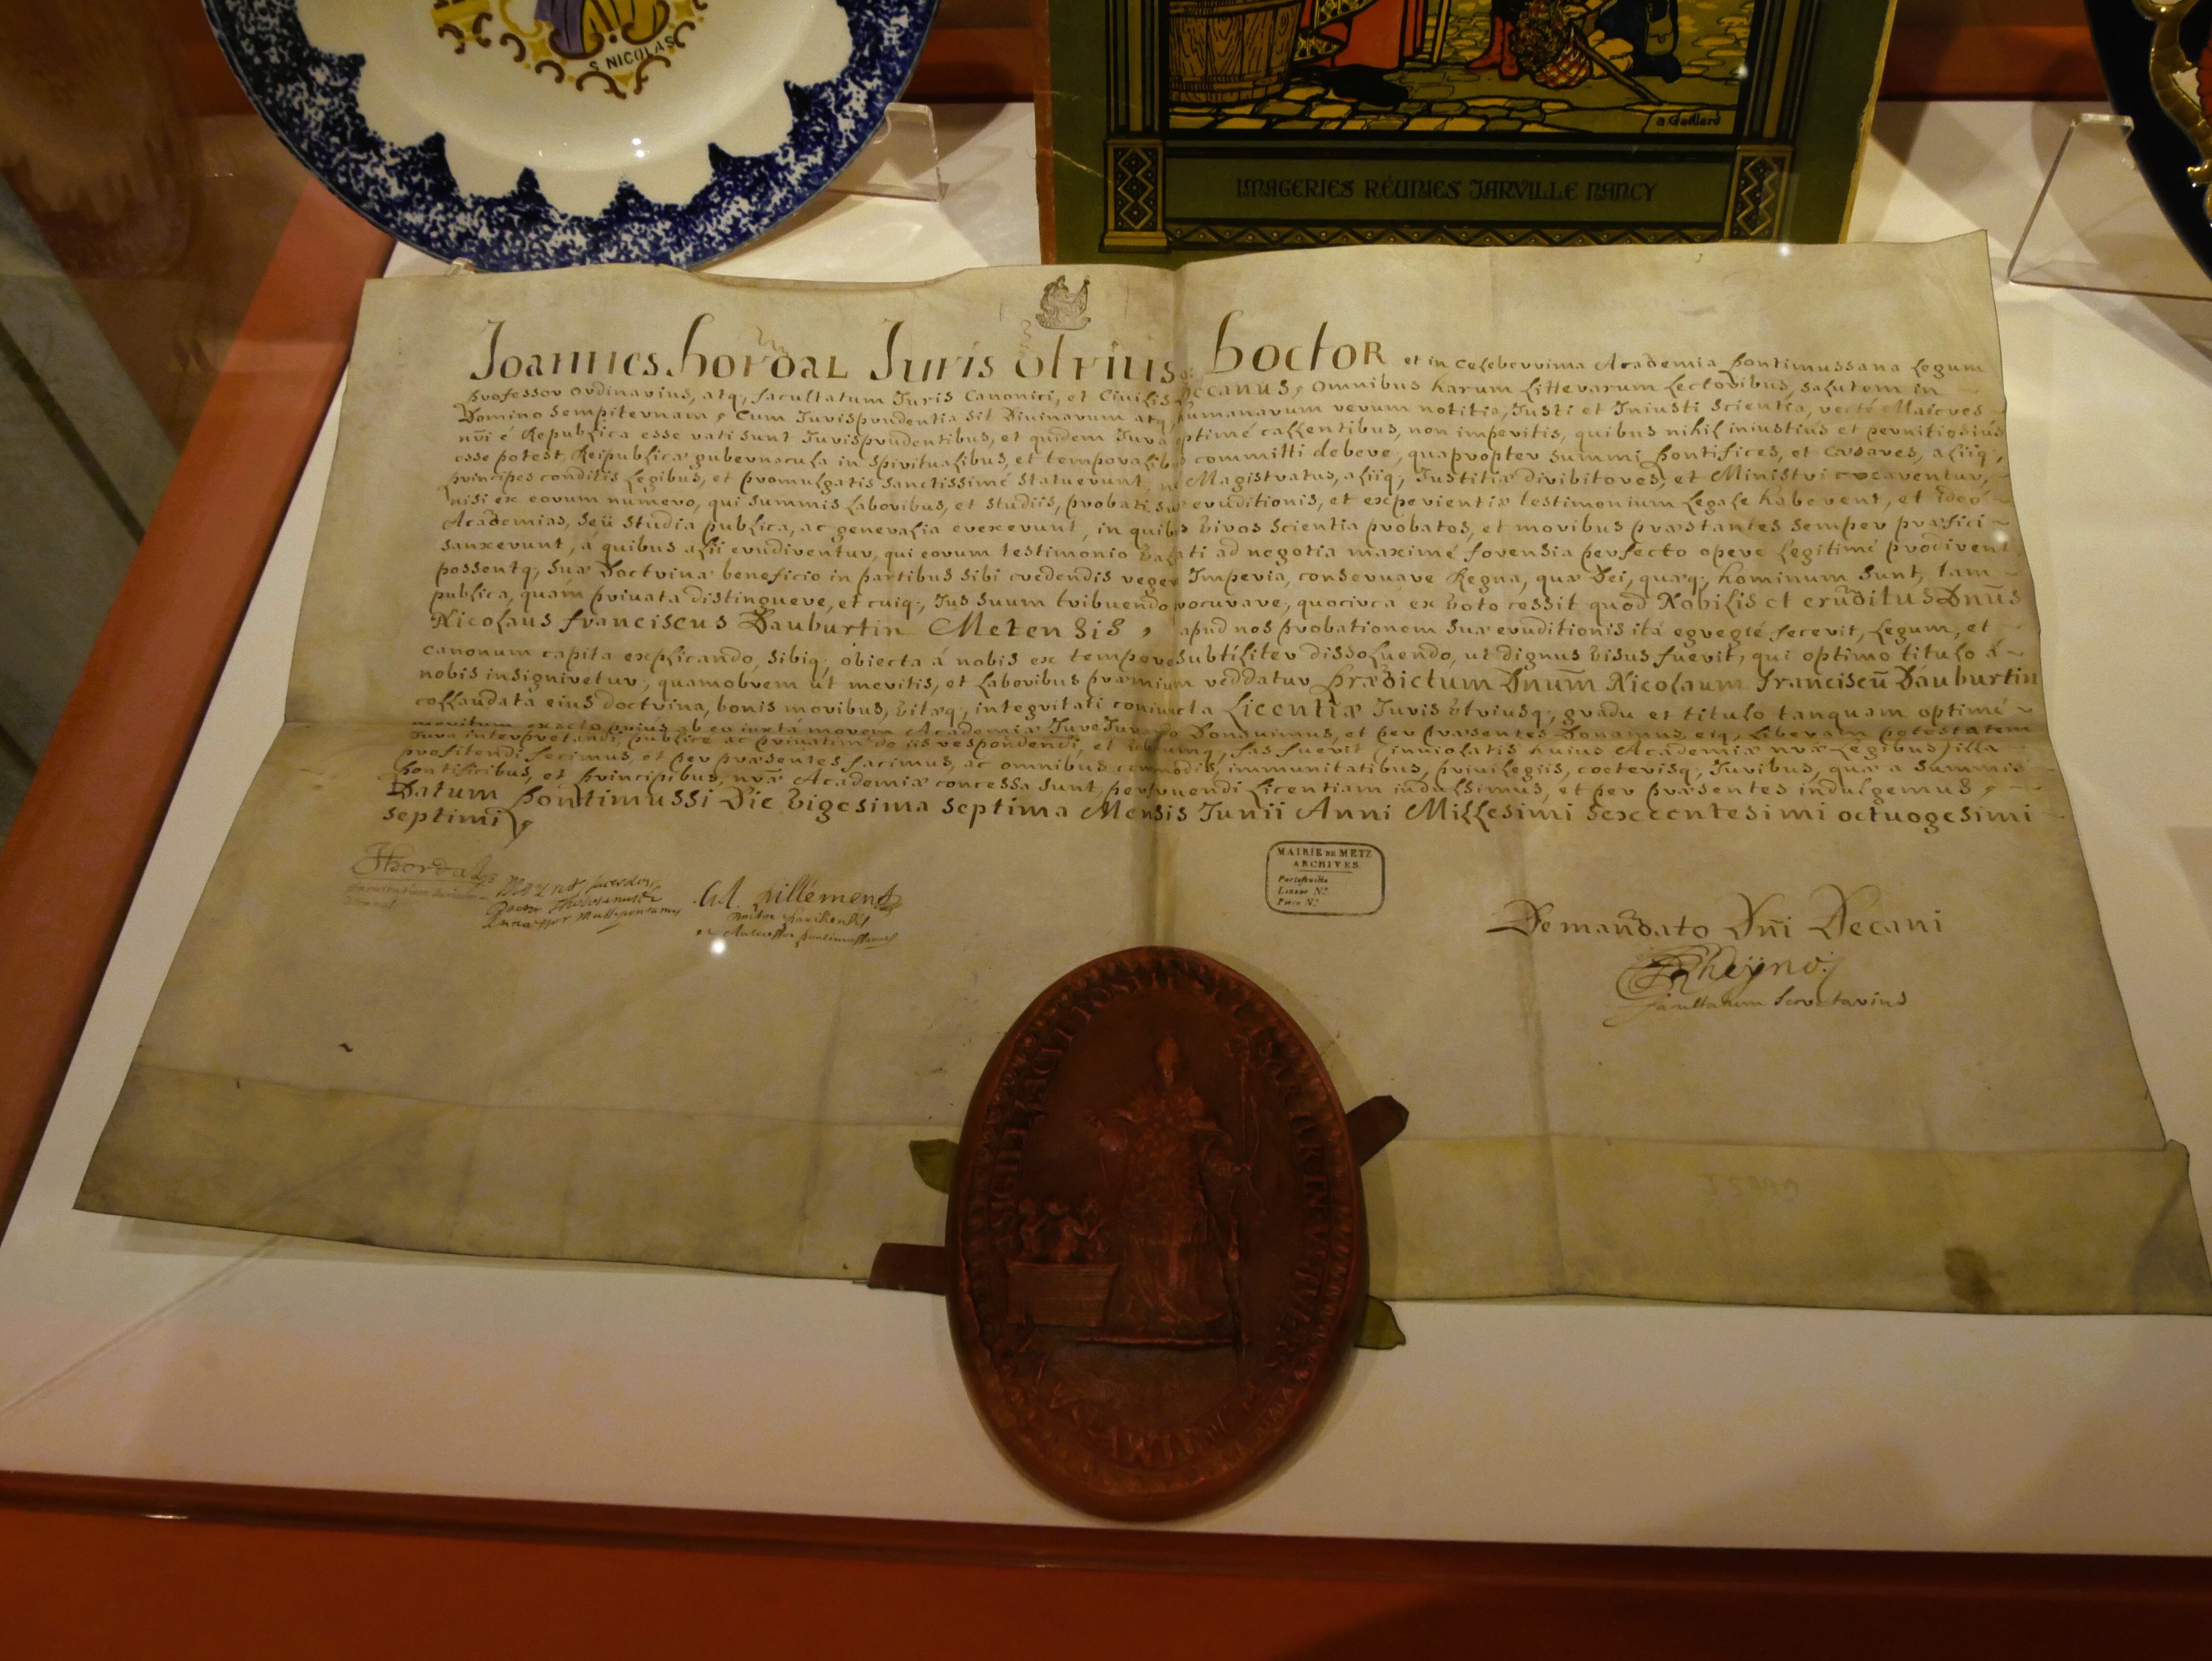 S NICOLAS
a. Gaillard
IMAGERIES RÉUNIES JARVILLE NANCY
Joannes hordal Juris Utriusq; Doctor et in celeberrima Academia Pontimussana Legum
professor ordinarius, atq; facultatum Juris Canonici, et Civilis Decanus, omnibus harum Litterarum Lectoribus, salutem in
Domino sempiternam, Cum Jurisprudentia sit Divinarum atq; humanarum rerum notitia, Justi et Iniusti scientia, recté Maiores
nri é Republica esse rati sunt Jurisprudentibus, et quidem Jura optimé callentibus, non imperitis, quibus nihil iniustius et pernitiosius
esse potest, Reipublicæ gubernacula in spiritualibus, et temporalibus committi debere, quapropter summi Pontifices, et Cæsares, aliiq;
principes conditis Legibus, et promulgatis sanctissimé statuerunt, ne Magistratus, aliiq; Justitiæ divibitores, et Ministri crearentur,
nisi ex eorum numero, qui summis Laboribus, et studiis, probati, suæ eruditionis, et experientiæ testimonium Legale haberent, et ideo
Academias, seü studia publica, ac generalia erexerunt, in quibus viros scientia probatos, et moribus præstantes semper præfici
sanxerunt, á quibus alii erudirentur, qui eorum testimonio vallati ad negotia maximé forensia perfecto opere Legitimé prodirent
possentq; suæ Doctrinæ beneficio in partibus sibi credendis regere Imperia, conservare Regna, quæ Dei, quæq; hominum sunt, tam
publica, quám privata distinguere, et cuiq; Jus suum tribuendo procurare, quocirca ex voto cessit quod Nobilis et eruditus Dnus
Nicolaus franciscus Dauburtin Metensis, apud nos probationem suæ eruditionis itá egregié fecerit, Legum, et
canonum capita explicando, sibiq; obiecta á nobis ex tempore subtiliter dissoluendo, ut dignus visus fuerit, qui optimo titulo á
nobis insigniretur, quamobrem ut meritis, et Laboribus præmium reddatur prædictum Dnum Nicolaum franciscū Dauburtin
collaudatá eius doctrina, bonis moribus, vitæq; integritati coniuncta Licentiæ Juris Utriusq; gradu et titulo tanquam optimé
meritum exacto priús ab eo iuxtá morem Academiæ Jure Jurando Donauimus, et per præsentes Donamus, eiq; Liberam potestatem
Jura interpretandi, publicé ac privatim de iis respondendi, et ubicumq; fas fuerit (inviolatis huius Academiæ nræ Legibus) illa
profitendi fecimus, et per præsentes facimus, ac omnibus commodis, immunitatibus, privilegiis, coeterisq; Juribus, quæ a summis
Pontificibus, et principibus, nræ Academiæ concessa sunt, perfruendi Licentiam indulsimus, et per præsentes indulgemus,
Datum Pontimussi Die vigesima septima Mensis Junii Anni Millesimi sexcentesimi octuogesimi
septimi
MAIRIE DE METZ
ARCHIVES
Portefeuille
Liasse N.º
Pièce N.º
De mandato Dñi Decani
Rheyno
facultatum secretarius